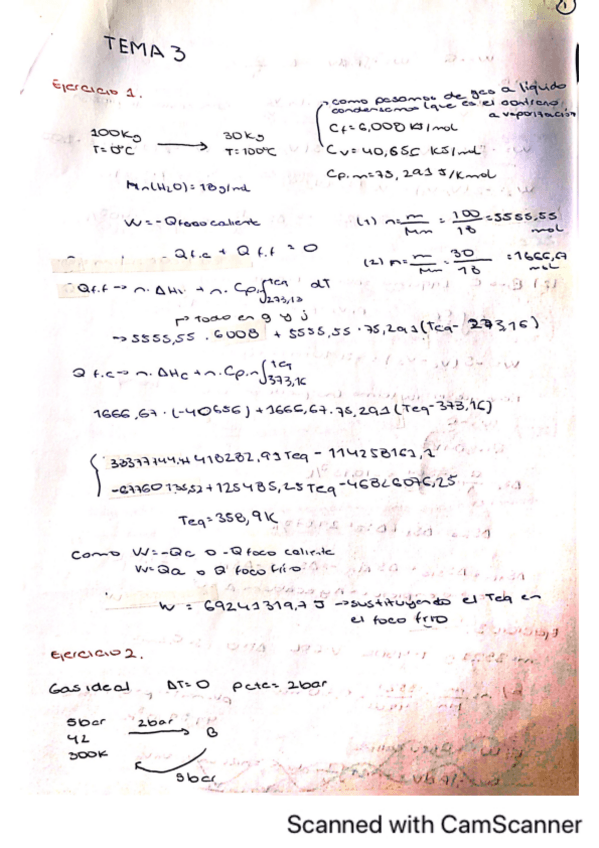 1
TEMA 3
Ejercicio 1.
como pasamos de gas a líquido
condensamos (que es el contrario
a vaporización
100Kg → 30Kg
T=0ºC T=100ºC
Cf=6,008 KJ/mol
Cv=40,656 KJ/mol
Cp,m=75,291 J/Kmol
Mm(H2O)=18g/mol
W=-Qfoco caliente
(1) n=m/Mm = 100/18 = 5555,55 mol
Qf.c + Qf.f = 0
(2) n=m/Mm = 30/18 = 1666,67 mol
Qf.f → n.ΔHf + n.Cp∫273,15 Teq dT
→ todo en g y j
→ 5555,55 . 6008 + 5555,55 . 75,291 (Teq - 273,16)
Q f.c → n.ΔHc + n.Cp.n∫373,16 Teq
1666,67 · (-40656) + 1666,67. 75,291 (Teq-373,16)
33377744,4+418282,91Teq - 114258161,2
-67760135,52+125485,25Teq-46826076,25
Teq=358,9K
Como W=-Qc o -Q foco caliente
W=Qa o Q foco frío
W = 69241319,7 J → sustituyendo el Teq en
el foco frío
Ejercicio 2.
Gas ideal ΔT=0 Pcte=2bar
5bar 2bar → B
4L
300K
5bar
Scanned with CamScanner